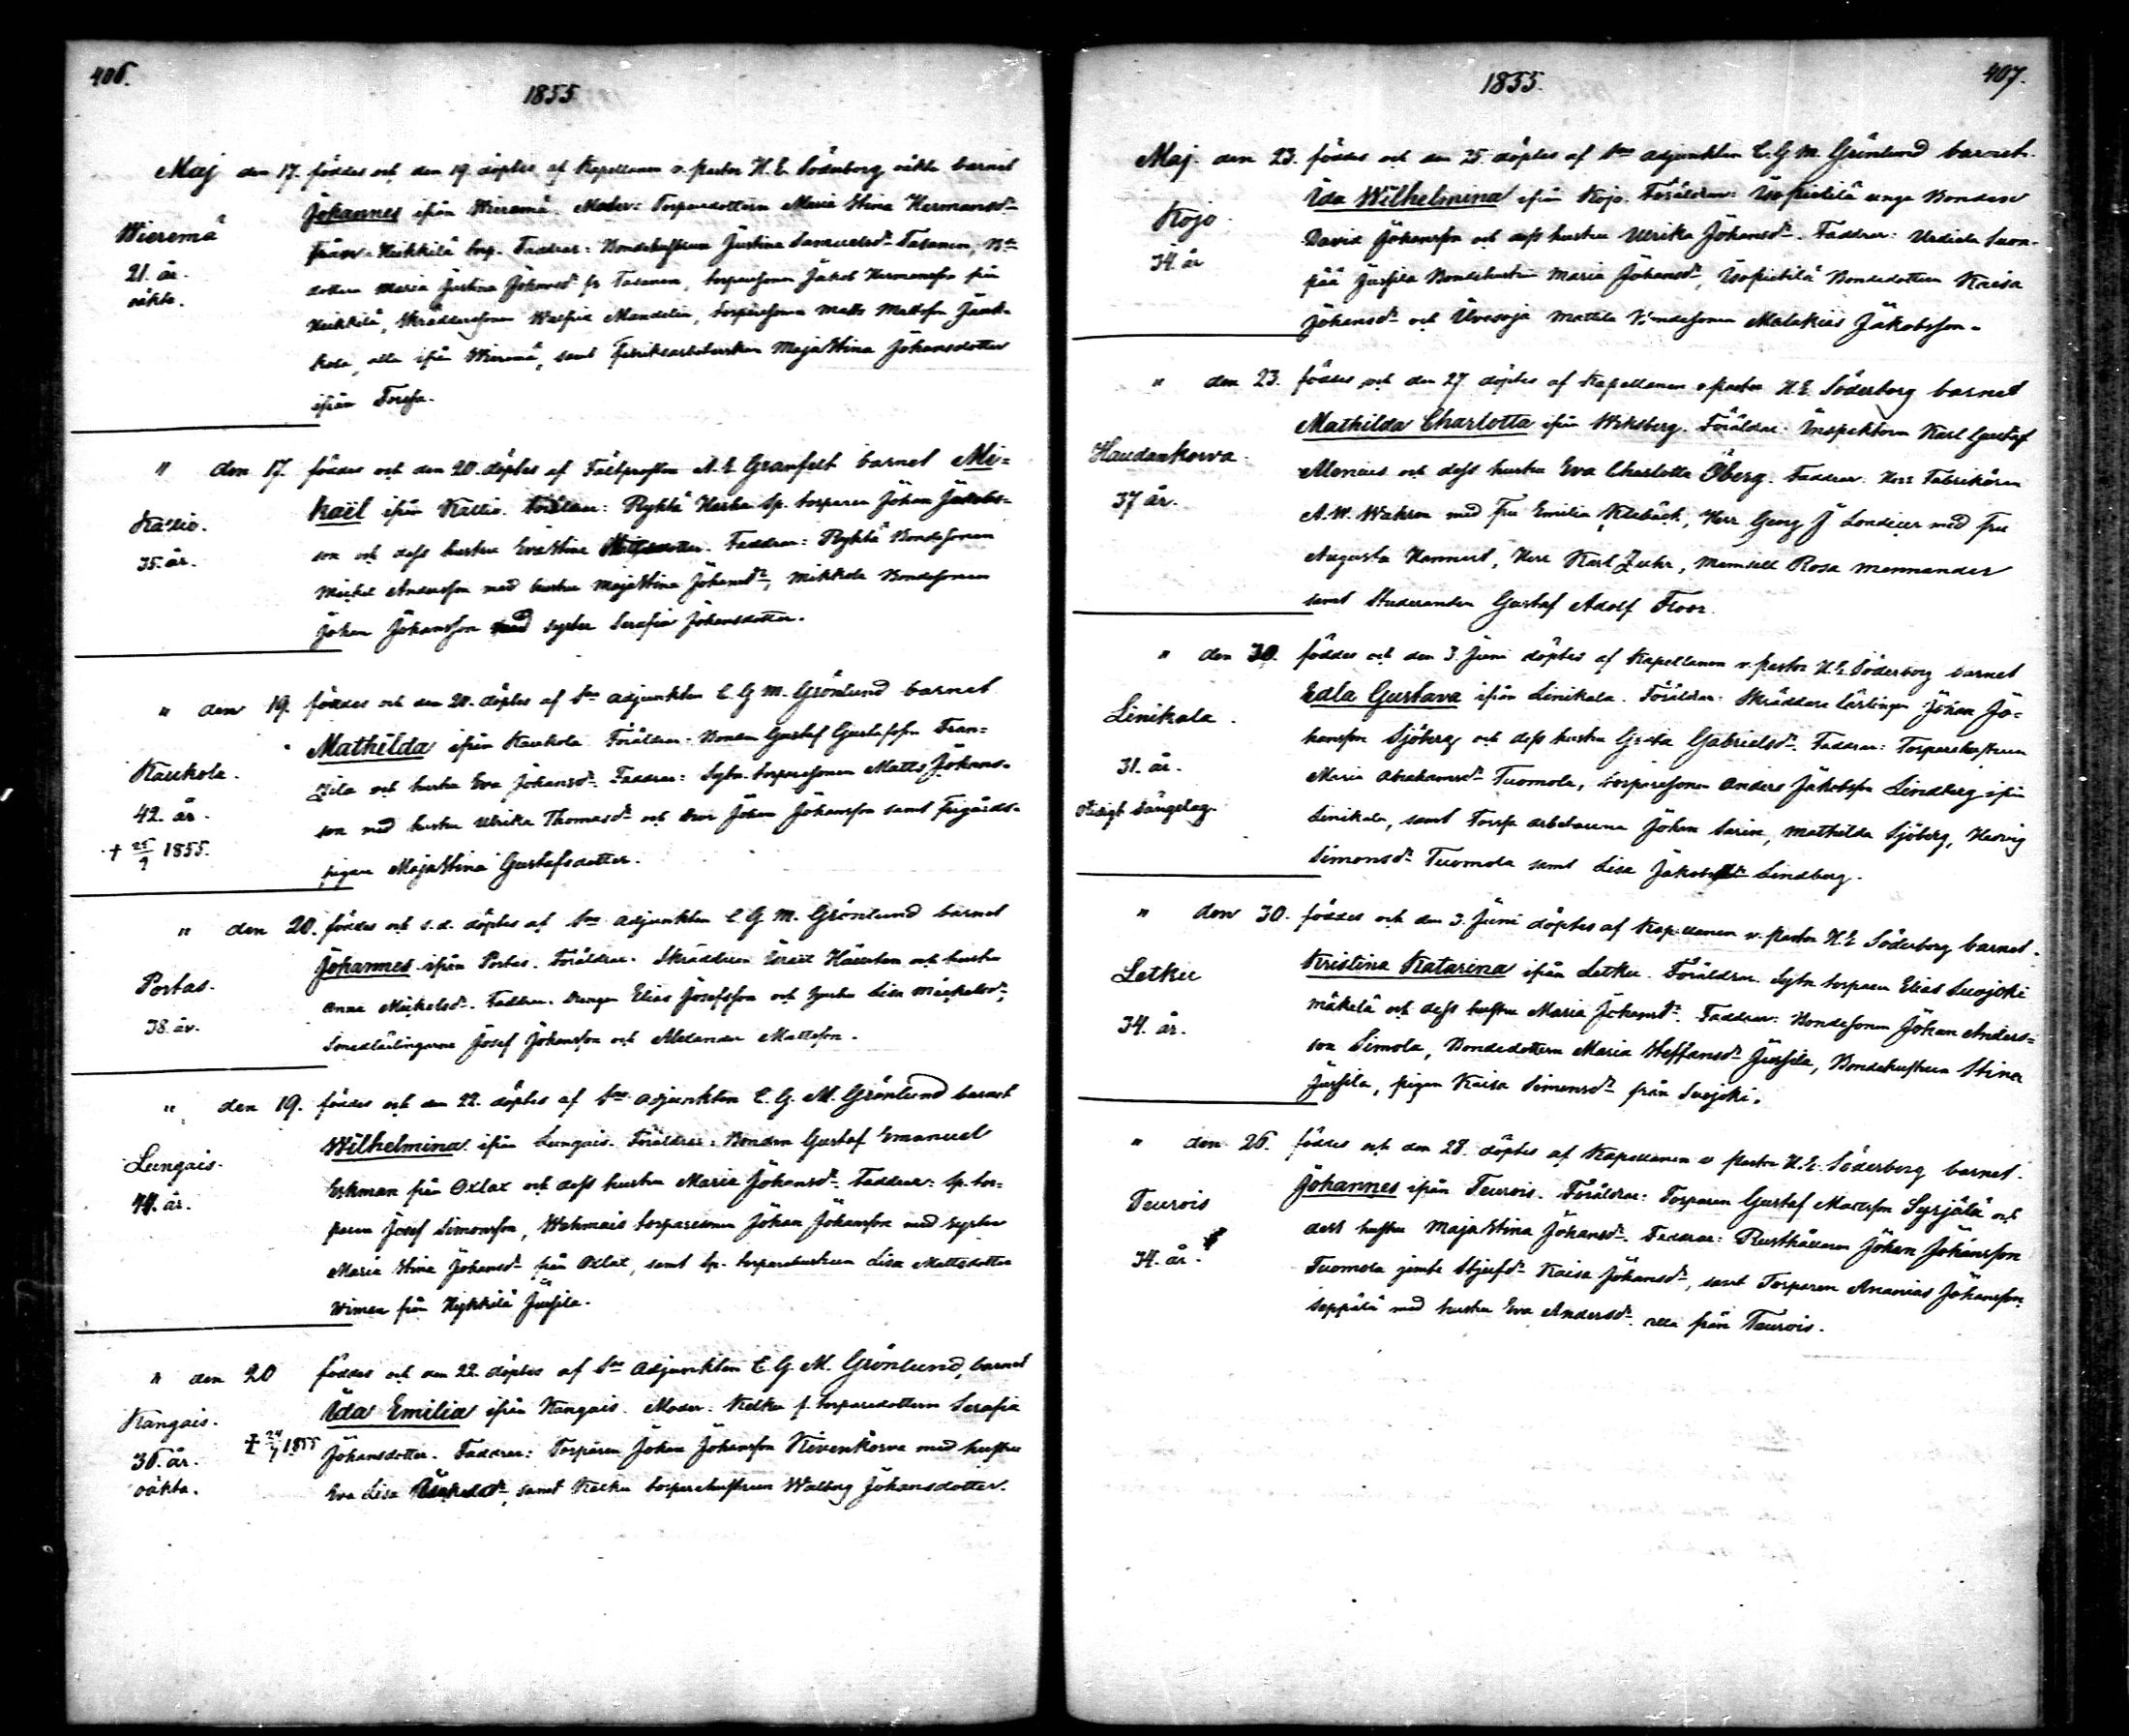 406.
1855
Maj den 17. föddes och den 19. döptes af Kapellanen v. pastor H. E. Söderborg oäkta barnet
Johannes ifrån Wieremä. Moder: Torparedottern Maria Stina Hermansdr
Wieremä
från Heikkilä torp. Faddrar: Bondehustrun Justina Samuelsdr Tasanen, B
21. år.
dottern Maria Justina Johansdr fr Tasanen, torparesonen Jakob Hermansson från
oäkta.
Heikkilä, Skräddaresonen Walfrid Mandelin, torparesonen Matts Mattsson Jaak-
kola, alla ifrån Wieremä, samt fabriksarbeterskan Maja Stina Johansdotter
ifrån Forssa.
" den 17. föddes och den 20. döptes af Fältprosten A. E. Granfelt barnet Mi=
kaël ifrån Kallio. Föräldrar: Ryktä sp. torparen Johan Jakobs=
Kallio.
son och dess hustru Eva Stina. Faddrar: Ryktä Bondesonen
35. år.
Mickel Andersson med hustru Maja Stina Johansdr, Mikkola Bondesonen
Johan Johansson med syster Serafia Johansdotter.
" den 19. föddes och den 20. döptes af adjunkten C. G. M. Grönlund barnet
Mathilda ifrån Kaukola. Föräldrar: Bonden Gustaf Gustafsson Fran=
Kaukola.
zila och hustru Eva Johansdr. Faddrar: Sytn. torparesonen Matts Johans-
42. år.
son med hustru Ulrika Thomasdr och Johan Johansson samt
+ 25/9 1855.
pigan Maja Stina Gustafsdotter.
" den 20. föddes och s.d. döptes af adjunkten C. G. M. Grönlund barnet
Johannes ifrån Portas. Föräldrar: Skräddaren Israel och hustru
Portas.
Anna Mickelsdr. Faddrar: Drengen Elias Josefsson och hustru Lisa Mickelsdr,
38. år.
Smedlärlingarne Josef Johansson och Alexander Mattsson.
" den 19. föddes och den 22. döptes af adjunkten C. G. M. Grönlund barnet
Wilhelmina ifrån Lungais. Föräldrar: Bonden Gustaf Emanuel
Lungais.
Eskman från Oxlax och dess hustru Maria Johansdr. Faddrar: Sp. tor-
44. år.
paren Josef Simonsson, Wehmais torparesonen Johan Johansson med syster
Maria Stina Johansdr från Oxlax, samt sp. torparehustrun Lisa Mattsdotter
från Jussila.
" den 20 föddes och den 22. döptes af adjunkten C. G. M. Grönlund, barnet
Ida Emilia ifrån Kangais. Moder: Kelku torparedottern Serafia
Kangais.
+ 24/7 1855
Johansdotter. Faddrar: Torparen Johan Johansson Kivenkorva med hustru
36. år.
oäkta.
Eva Lisa, samt Kelku torparehustrun Walborg Johansdotter.
407.
1855.
Maj. den 23. föddes och den 25. döptes af adjunkten C. G. M. Grönlund barnet
Ida Wilhelmina ifrån Kojo. Föräldrar: Isopietilä unge Bonden
Kojo.
David Johansson och dess hustru Ulrika Johansdr. Faddrar: Urdiala Suon-
34. år
pää Jussila Bondehustrun Maria Johansdr, Isopietilä Bondedottern Kaisa
Johansdr och Uvaroja Mattila Bondesonen Malakias Jakobsson.
" den 23. föddes och den 27. döptes af Kapellanen v. pastor H. E. Söderborg barnet
Mathilda Charlotta ifrån Wiksberg. Föräldrar: Inspektoren Karl Gustaf
Haudankorva.
Alenius och dess hustru Eva Charlotta Öberg. Faddrar: Herr Fabrikören
37 år.
A. W. Wahren med fru Emilia Klebäck, Herr Georg J Londicer med fru
Augusta, Herr Karl Zuhr, Mamsell Rosa Mennander
samt Studeranden Gustaf Adolf Floor.
" den 30. föddes och den 3. Juni döptes af Kapellanen v. pastor H. E. Söderborg barnet
Edla Gustava ifrån Linikala. Föräldrar: Skräddare lärlingen Johan Jo=
Linikala.
hansson Sjöberg och dess hustru Greta Gabrielsdr. Faddrar: Torparehustrun
31. år.
Maria Abrahamsdr Tuomola, torparesonen Anders Jakobsson Lindberg ifrån
Linikala, samt Forssa arbetarena Johan Sarin, Mathilda Sjöberg, Hedvig
Simonsdr Tuomola samt Lisa Jakobsdr Lindberg.
" den 30. föddes och den 3. Juni döptes af Kapellanen v. pastor H. E. Söderborg barnet
Kristina Katarina ifrån Letku. Föräldrar: Sytn torparen Elias Suojoki
Letku
mäkelä och dess hustru Maria Johansdr. Faddrar: Bondesonen Johan Anders=
34. år.
son Simola, Bondedottern Maria Steffansdr Jussila, Bondehustrun Stina
Jussila, pigan Kaisa Simonsdr från Suojoki.
" den 26. föddes och den 28. döptes af Kapellanen v pastor H. E. Söderborg barnet
Johannes ifrån Teurois. Föräldrar: Torparen Gustaf Mattsson Syrjälä och
Teurois
dess hustru Maja Stina Johansdr. Faddrar: Rusthållaren Johan Johansson
34. år.
Tuomola jemte Stjufdr Kaisa Johansdr, samt Torparen Ananias Johansson
Seppälä med hustru Eva Andersdr. alla från Teurois.